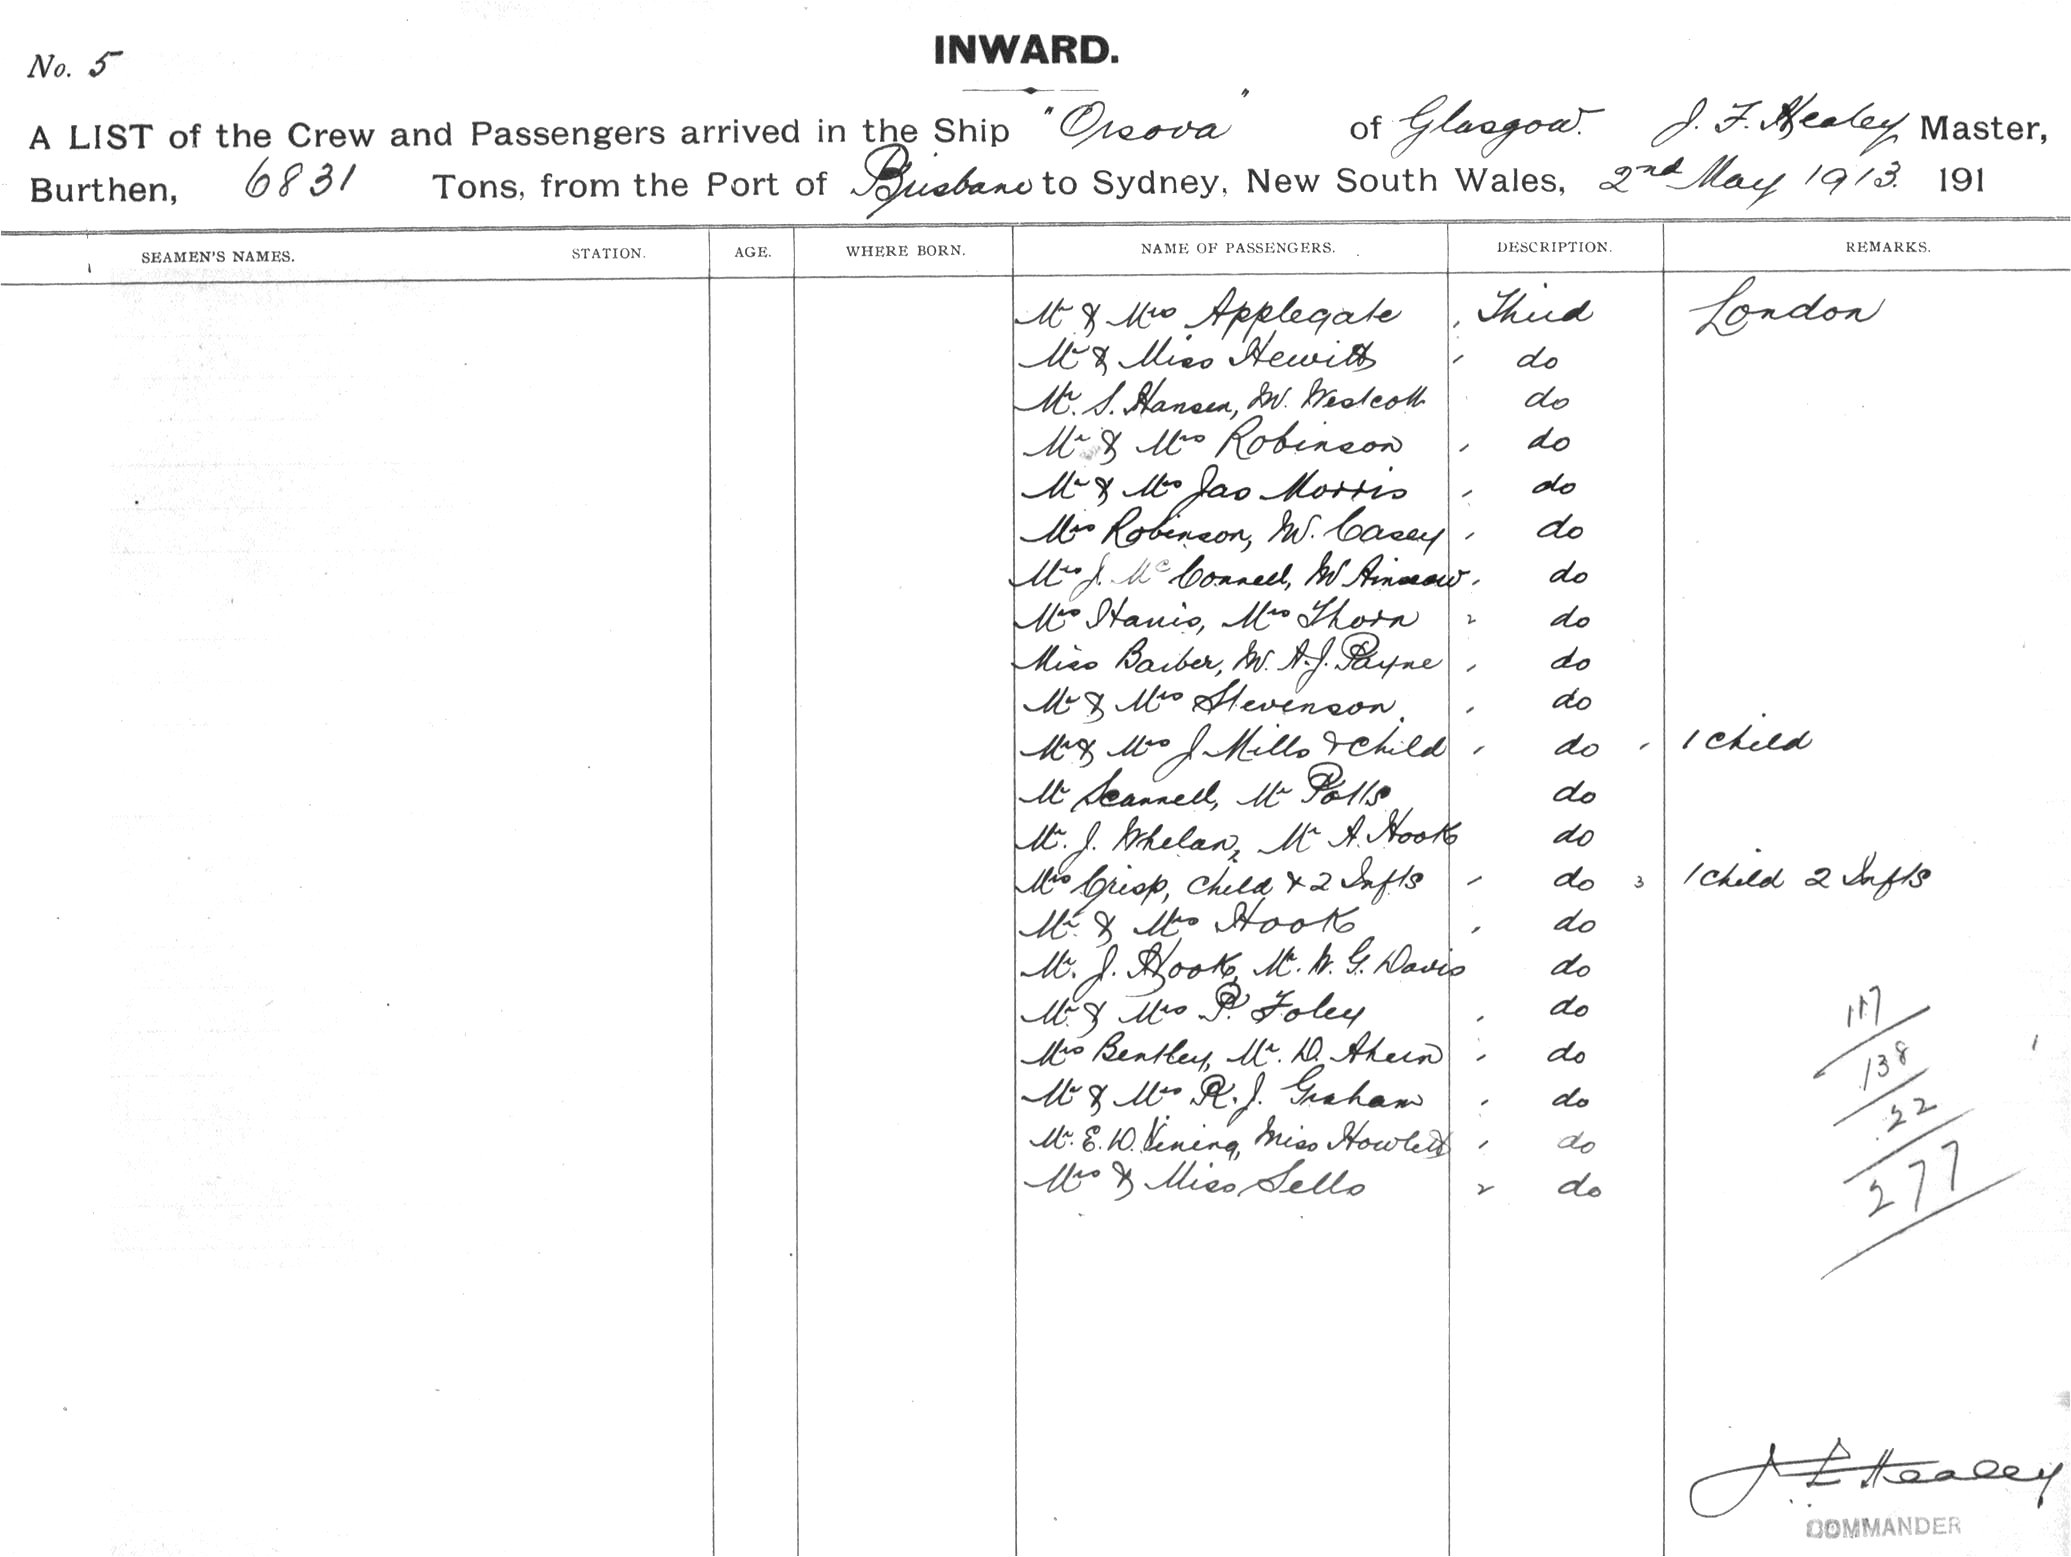 INWARD.
No. 5
A LIST of the Crew and Passengers arrived in the Ship "Orsova" of Glasgow. J. F. Healey Master,
Burthen, 6831 Tons, from the Port of Brisbane to Sydney, New South Wales, 2nd May 1913. 191
SEAMEN'S NAMES. STATION. AGE. WHERE BORN. NAME OF PASSENGERS. DESCRIPTION. REMARKS.
Mr & Mrs Applegate Third London
Mr & Miss Hewitt do
Mr. S. Hansen, Mr. Westcott do
Mr & Mrs Robinson do
Mr & Mrs Jas Morris do
Mrs Robinson, Mr. Casey do
Mrs J. McConnell, Mr do
Mrs Harris, Mrs Thorn do
Miss Barber, Mr. A. J. Payne do
Mr & Mrs Stevenson do
Mr & Mrs J Mills & Child do 1 child
Mr Scannell, Mr Potts do
Mr. J. Whelan, Mr A. Hook do
Mrs Crisp, child & 2 Infts do 3 1 child 2 Infts
Mr. & Mrs Hook do
Mr. J. Hook, Mr. W. G. Davis do
Mr. & Mrs P. Foley do
117
Mrs Bentley, Mr. D. Ahern do
138
Mr & Mrs R. J. Graham do
22
Mr. E. D. Vining, Miss Howlett do
Mrs & Miss Sells do
277
J F Healey
COMMANDER